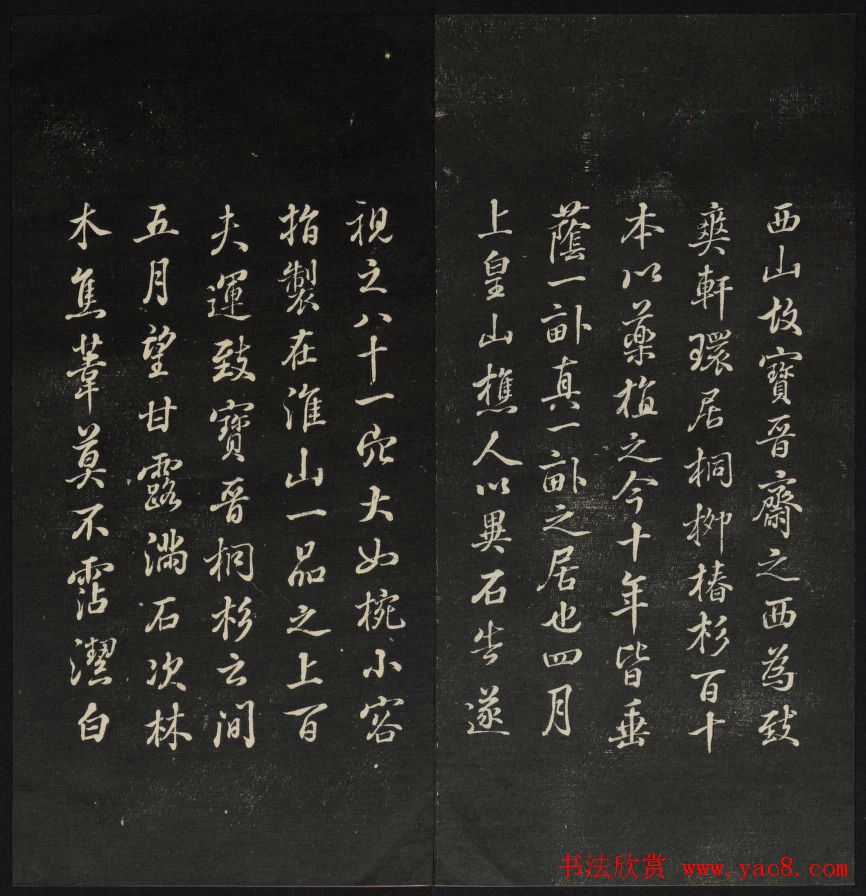 西山故寶晉齋之西為致
爽軒環居桐柳椿杉百十
本以藥植之今十年皆垂
蔭一畝真一畝之居也四月
上皇山樵人以異石告遂
視之八十一穴大如椀小容
指製在淮山一品之上百
夫運致寶晉桐杉之間
五月望甘露滿石次林
木焦葦莫不霑潔白
书法欣赏 www.yac8.com